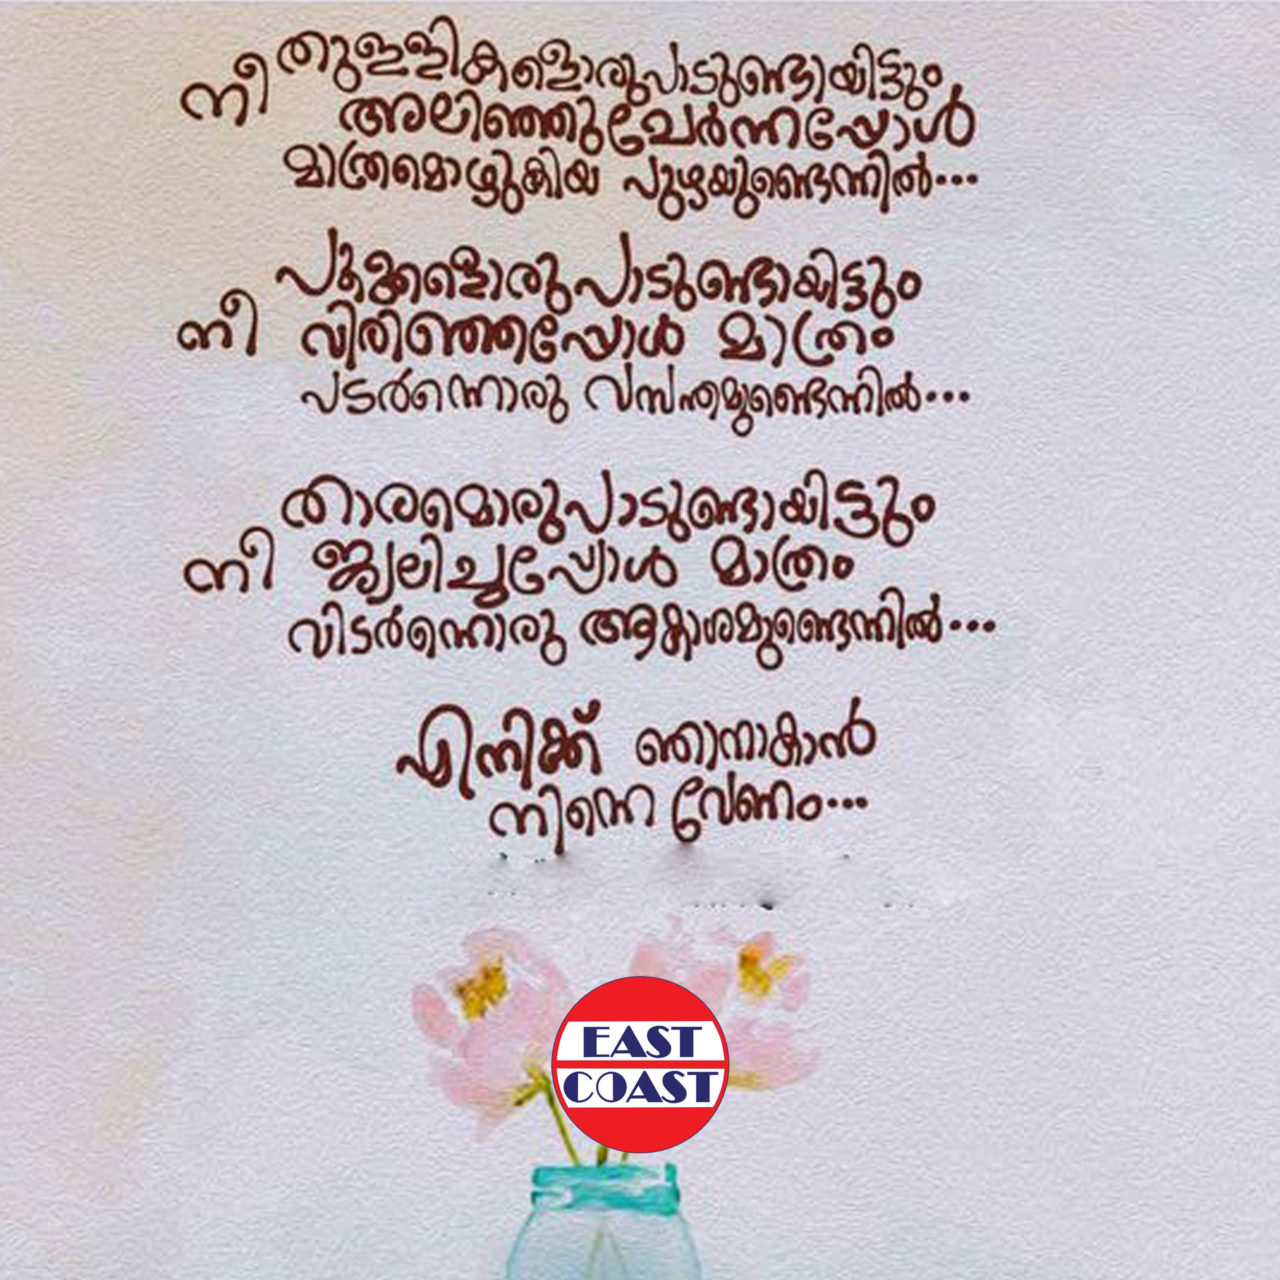 തുള്ളികളൊരുപാടുണ്ടായിട്ടും
നീ അലിഞ്ഞുചേർന്നപ്പോൾ
മാത്രമൊഴുകിയ പുഴയുണ്ടെന്നിൽ...
പൂക്കളൊരുപാടുണ്ടായിട്ടും
നീ വിരിഞ്ഞപ്പോൾ മാത്രം
പടർന്നൊരു വസന്തമുണ്ടെന്നിൽ...
താരമൊരുപാടുണ്ടായിട്ടും
നീ ജ്വലിച്ചപ്പോൾ മാത്രം
വിടർന്നൊരു ആകാശമുണ്ടെന്നിൽ...
എനിക്ക് ഞാനാകാൻ
നിന്നെ വേണം...
EAST
COAST